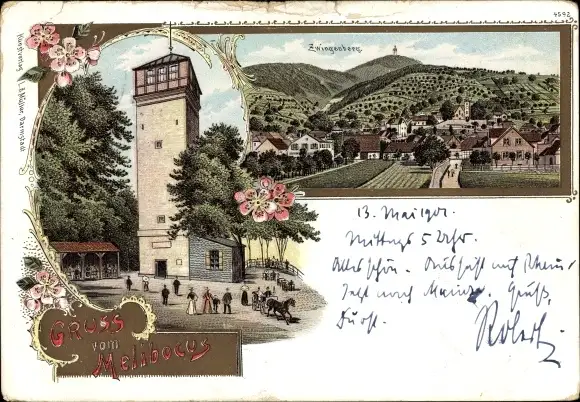 4592
Zwingenberg.
Kunstverlag L.A. Müller, Darmstadt
GRUSS
vom
Melibocus
13. Mai 1901.
Mittags 5 Uhr.
Alles schön. Aussicht auf Rhein,
Jetzt nach Mainz. Gruß,
Durst.
Robert